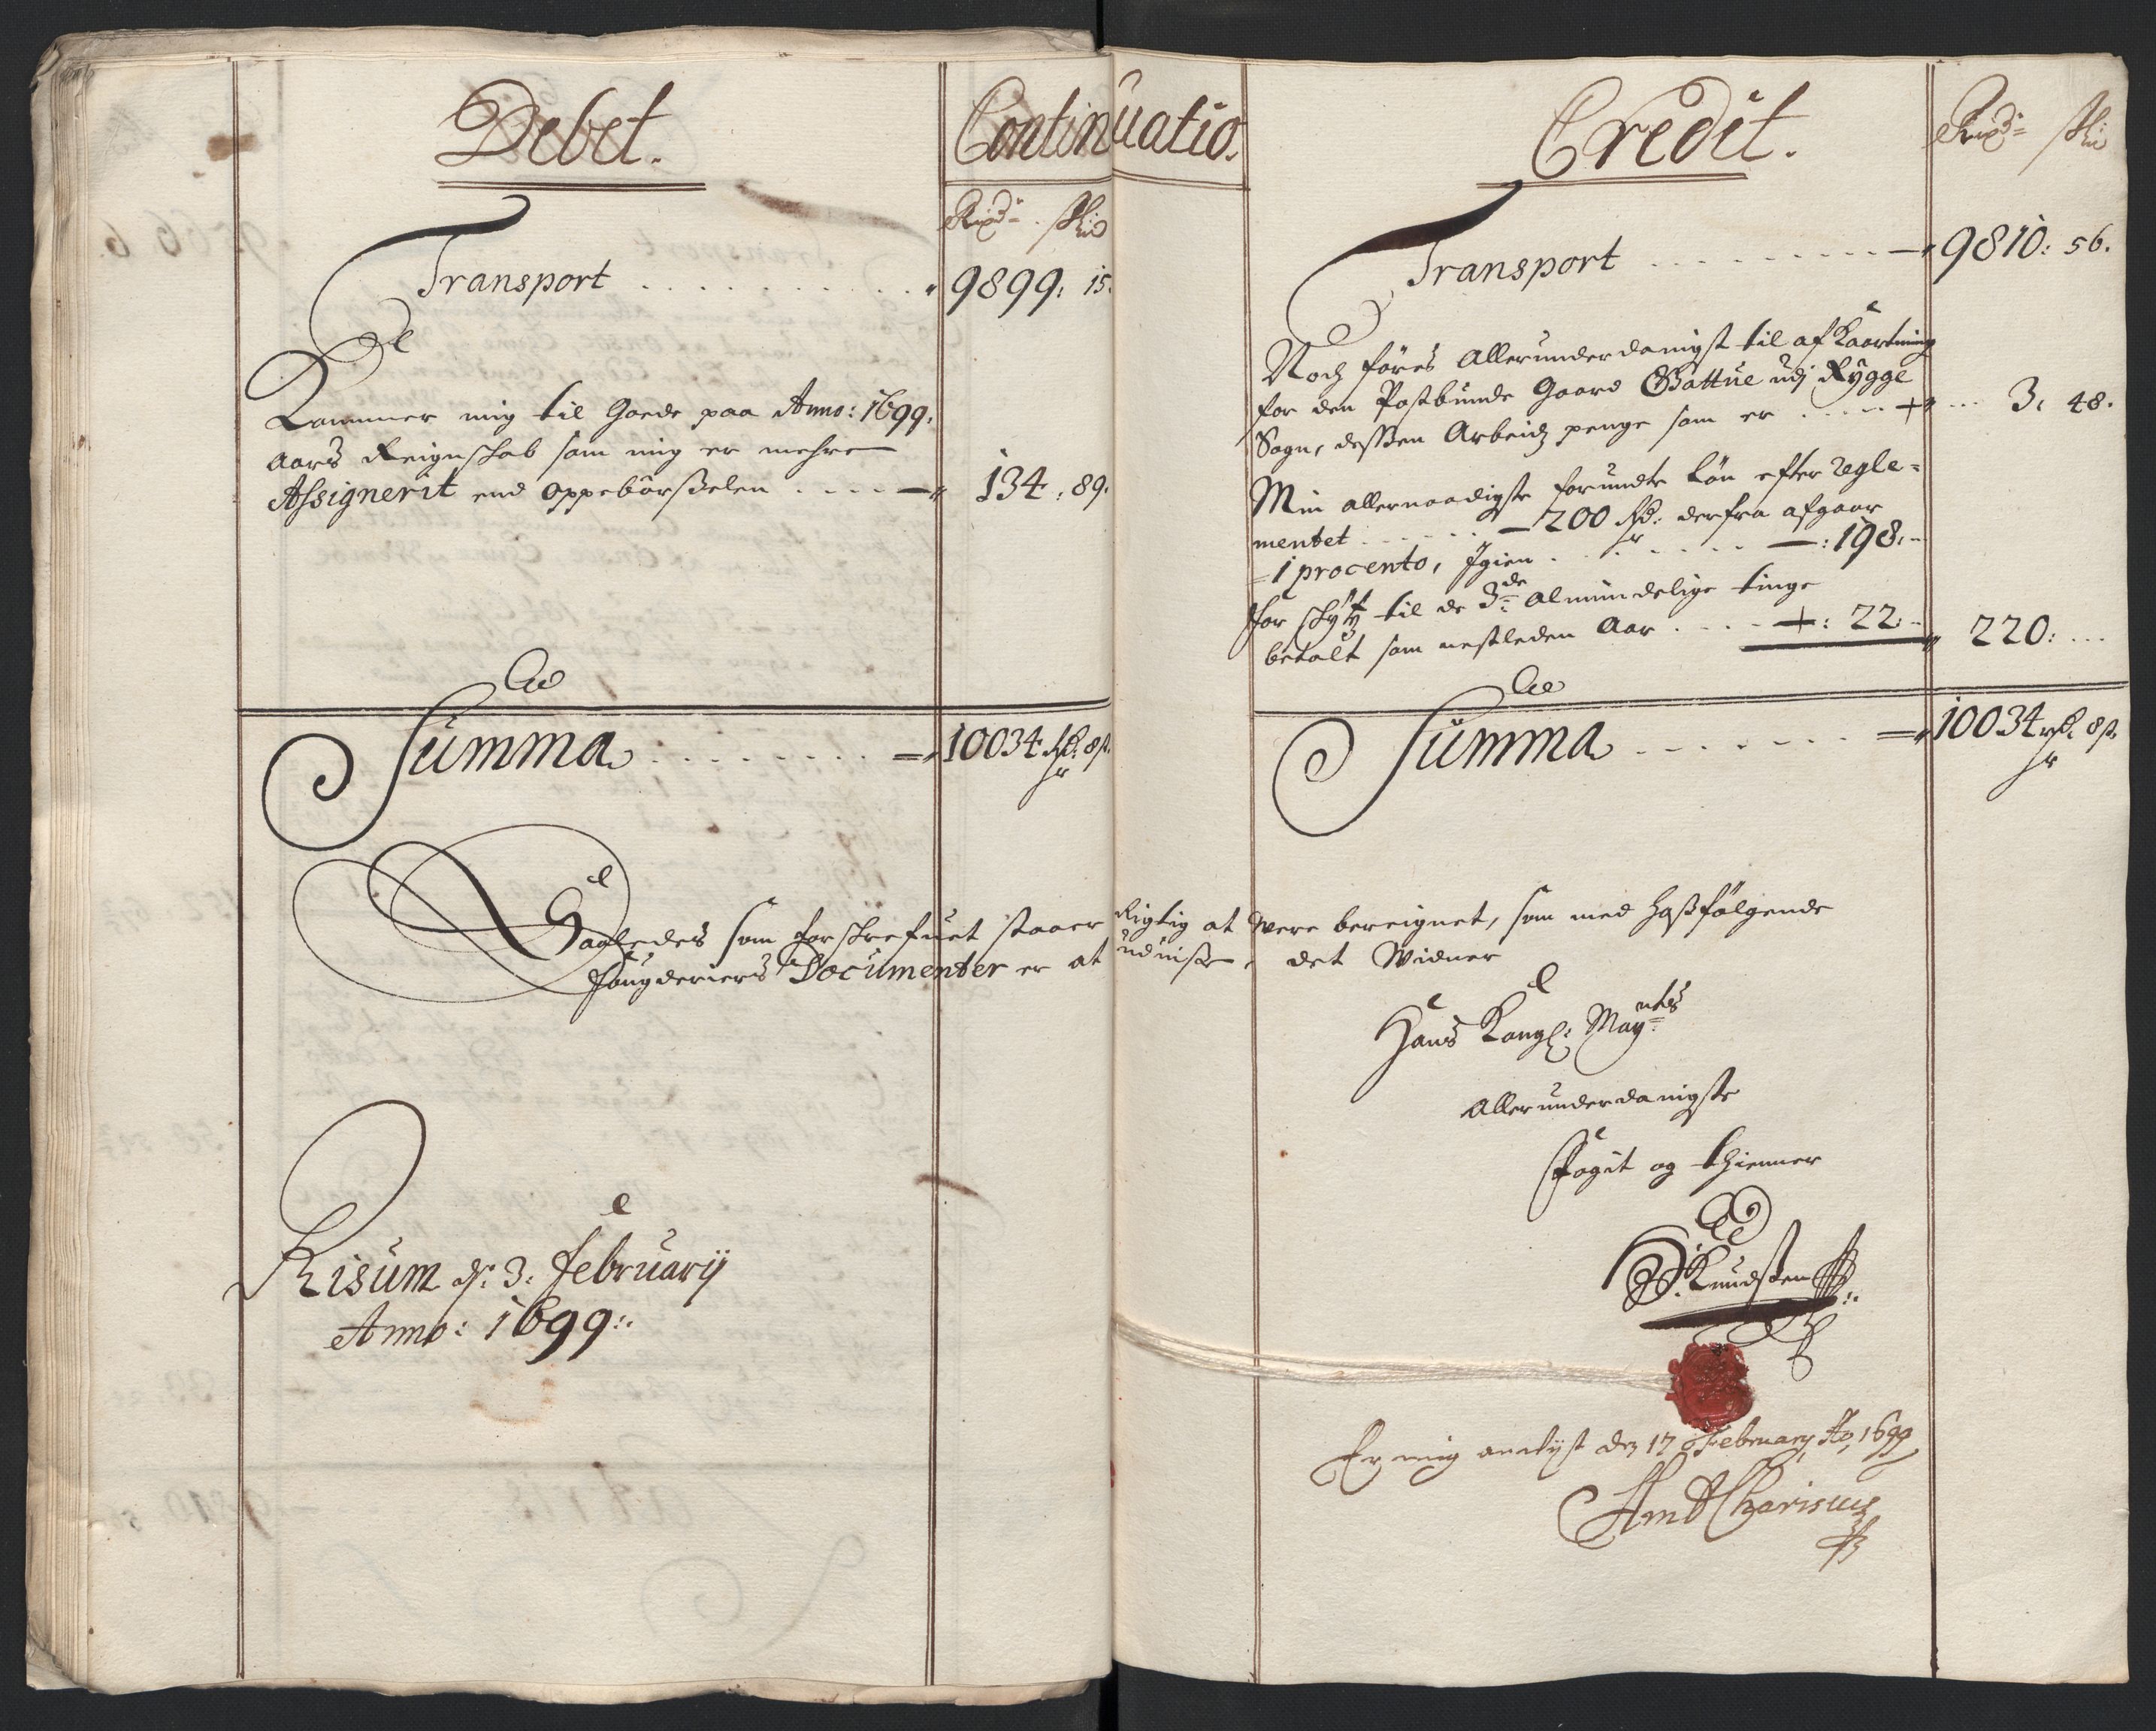 Debet.
Continuatio.
Rixdr. skil
Transport . . . . . . . . . . . 9899: 15.
Kommer mig til Goede paa Anno: 1699.
Aars Reignskab som mig er mehre
Assignerit end oppebörsselen . . . . — 134: 89.
Summa . . . . . . . . = 10034 Rdr. 8 s.
Credit.
Rixdr. skil
Transport . . . . . . . . . . — 9810: 56.
Noch föres Allerunderdanigst til afkaartning
for den Postbunde Gaard Gattue udj Rygge
Sogn, desssen Arbeidz penge som er . . . . . 3: 48.
Min allernaadigste forundte Lön efter Regle=
mentet . . . . . . — 200 Rdr: derfra afgaar
1 procento, Igien . . . . . . . . —: 198:
for skytz til de 3de Almindelige tinge
betalt som nestleden Aar . . . . : 22: 220: ...
Summa . . . . . . . = 10034 Rdr. 8 s.
Saaledes som forskrefuet staaer Rigtig at were bereignet, som med hosfölgende
fougderiers Documenter er at udviisse, det Widner
Hans Kongl: Mayntes
Allerunderdanigste
Fogit og thienner
Knudssen
Risum d: 3: February
Anno: 1699:.
Er mig andtvist den 17 February Ao 1699
Am Charisius